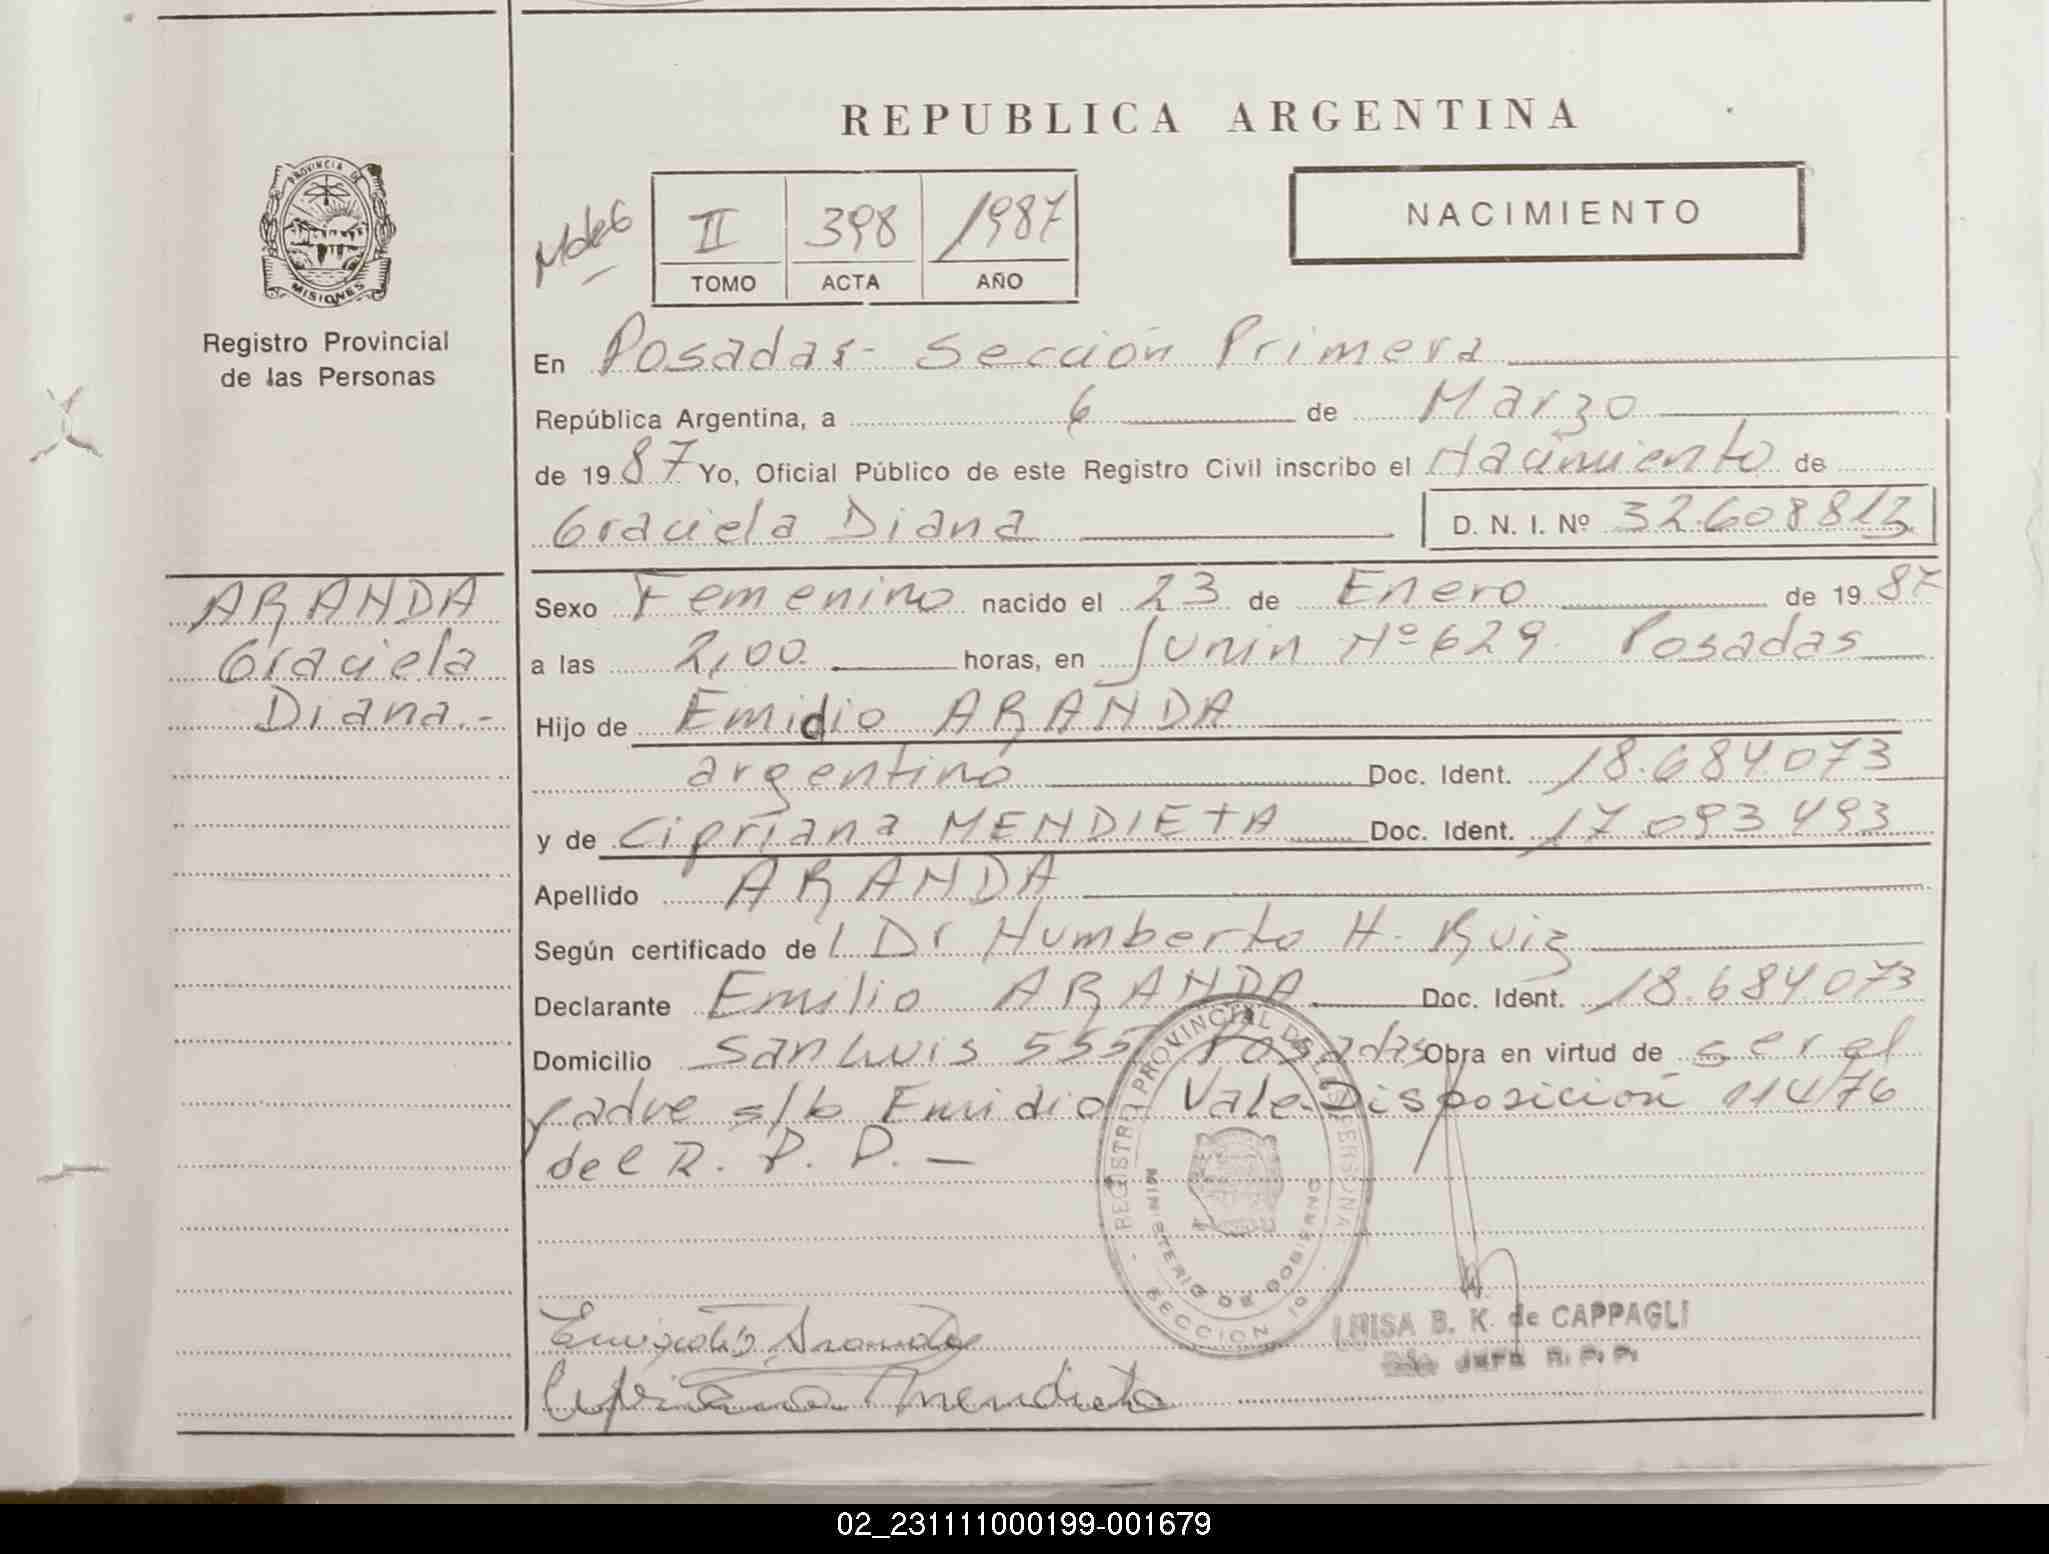 REPUBLICA ARGENTINA
PROVINCIA DE
MISIONES
Registro Provincial
de las Personas
II 398 1987
TOMO ACTA AÑO
NACIMIENTO
En Posadas - Sección Primera
República Argentina, a 6 de Marzo
de 1987 Yo, Oficial Público de este Registro Civil inscribo el Nacimiento de
Graciela Diana D. N. I. Nº 32.608813
ARANDA
Graciela
Diana.-
Sexo Femenino nacido el 23 de Enero de 1987
a las 2,00 horas, en Junin Nº 629. Posadas
Hijo de Emidio ARANDA
argentino Doc. Ident. 18.684.073
y de Cipriana MENDIETA Doc. Ident. 17.093.493
Apellido ARANDA
Según certificado de l Dr Humberto H. Ruiz
Declarante Emilio ARANDA Doc. Ident. 18.684.073
Domicilio San Luis 555 Posadas Obra en virtud de ser el
padre s/b Emidio Vale. Disposición 114/76
del R. P. P. —
REGISTRO PROVINCIAL DE LAS PERSONAS
MINISTERIO DE GOBIERNO
SECCION 1º
Aranda
Cipriana Mendieta
LUISA B. K. de CAPPAGLI
Jefe R. P. P.
02_231111000199-001679